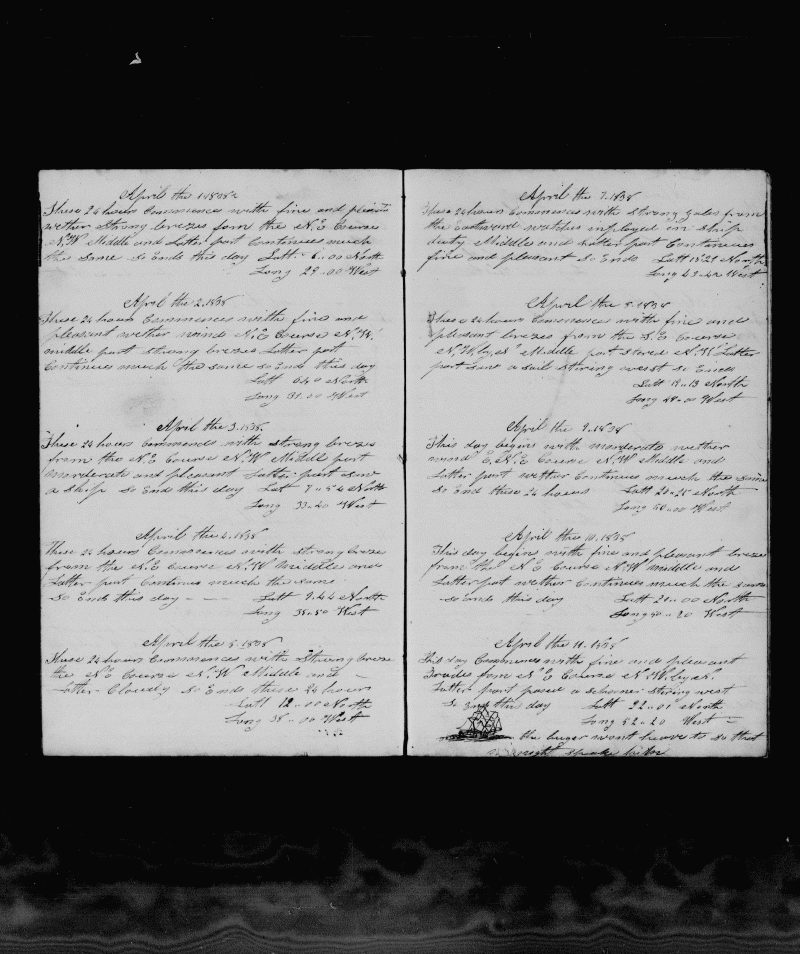 April the 1. 1838
These 24 hours Commences with fine and pleasant
wether Strong brezes from the N.E Course
N.W Middle and Latter part Continues much
the same so Ends this day Latt 6..00 North
Long 29..00 West
April the 2. 1838
These 24 hours Commences with fine and
pleasant wether wind N.E Course N.W.
middle part strong brezes Latter part
Continues much the same so End this day
Latt 640 North
Long 31.00 West
April the 3. 1838
These 24 hours Commences with strong brezes
from the N.E Course N.W Middle part
morderate and pleasant Latter part saw
a ship so Ends this day Latt 7..54 North
Long 33..20 West
April the 4. 1838
These 24 hours Commences with strong breze
from the N.E Course N.W middle and
Latter part Continues much the sam
so Ends this day - - - Latt 9.44 North
Long 35..50 West
April the 5. 1838
These 24 hours Commences with Strong breze
the N.E Course N.W Middle and
Latter Cloudy so Ends these 24 hours
Latt 12..00 North
Long 38..00 West
April the 7. 1838
These 24 hours Commences with strong gales from
the Eastward watches imployed in ship
duty Middle and Latter part Continues
fine and pleasant so Ends Latt 15"28 North
Long 43..42 West
April the 8. 1838
These 24 hours Commences with fine and
pleasant brezes from the S.E Course
N.W.by.N Middle part stered N.W. Latter
part saw a sail stiring west so Ends
Latt 18..13 North
Long 48..00 West
April the 9. 1838
This day begins with morderate wether
wind E.N.E Course N.W Middle and
Latter part wether Continues much the same
so End these 24 hours Latt 20..25 North
Long 50..00 West
April the 10. 1838
This day begins with fine and pleasant brezes
from the N.E Course N.W middle and
Latter part wether Continues much the same
so ends this day Latt 21..00 North
Long 50..20 West
April the 11. 1838
This day Commences with fine and pleasant
Trades from N.E Course N.W.by.N.
Latter part pased a schoner stiring west
so End this day Latt 22..01 North
Long 52..20 West
the buger wont heave to so that
might speake